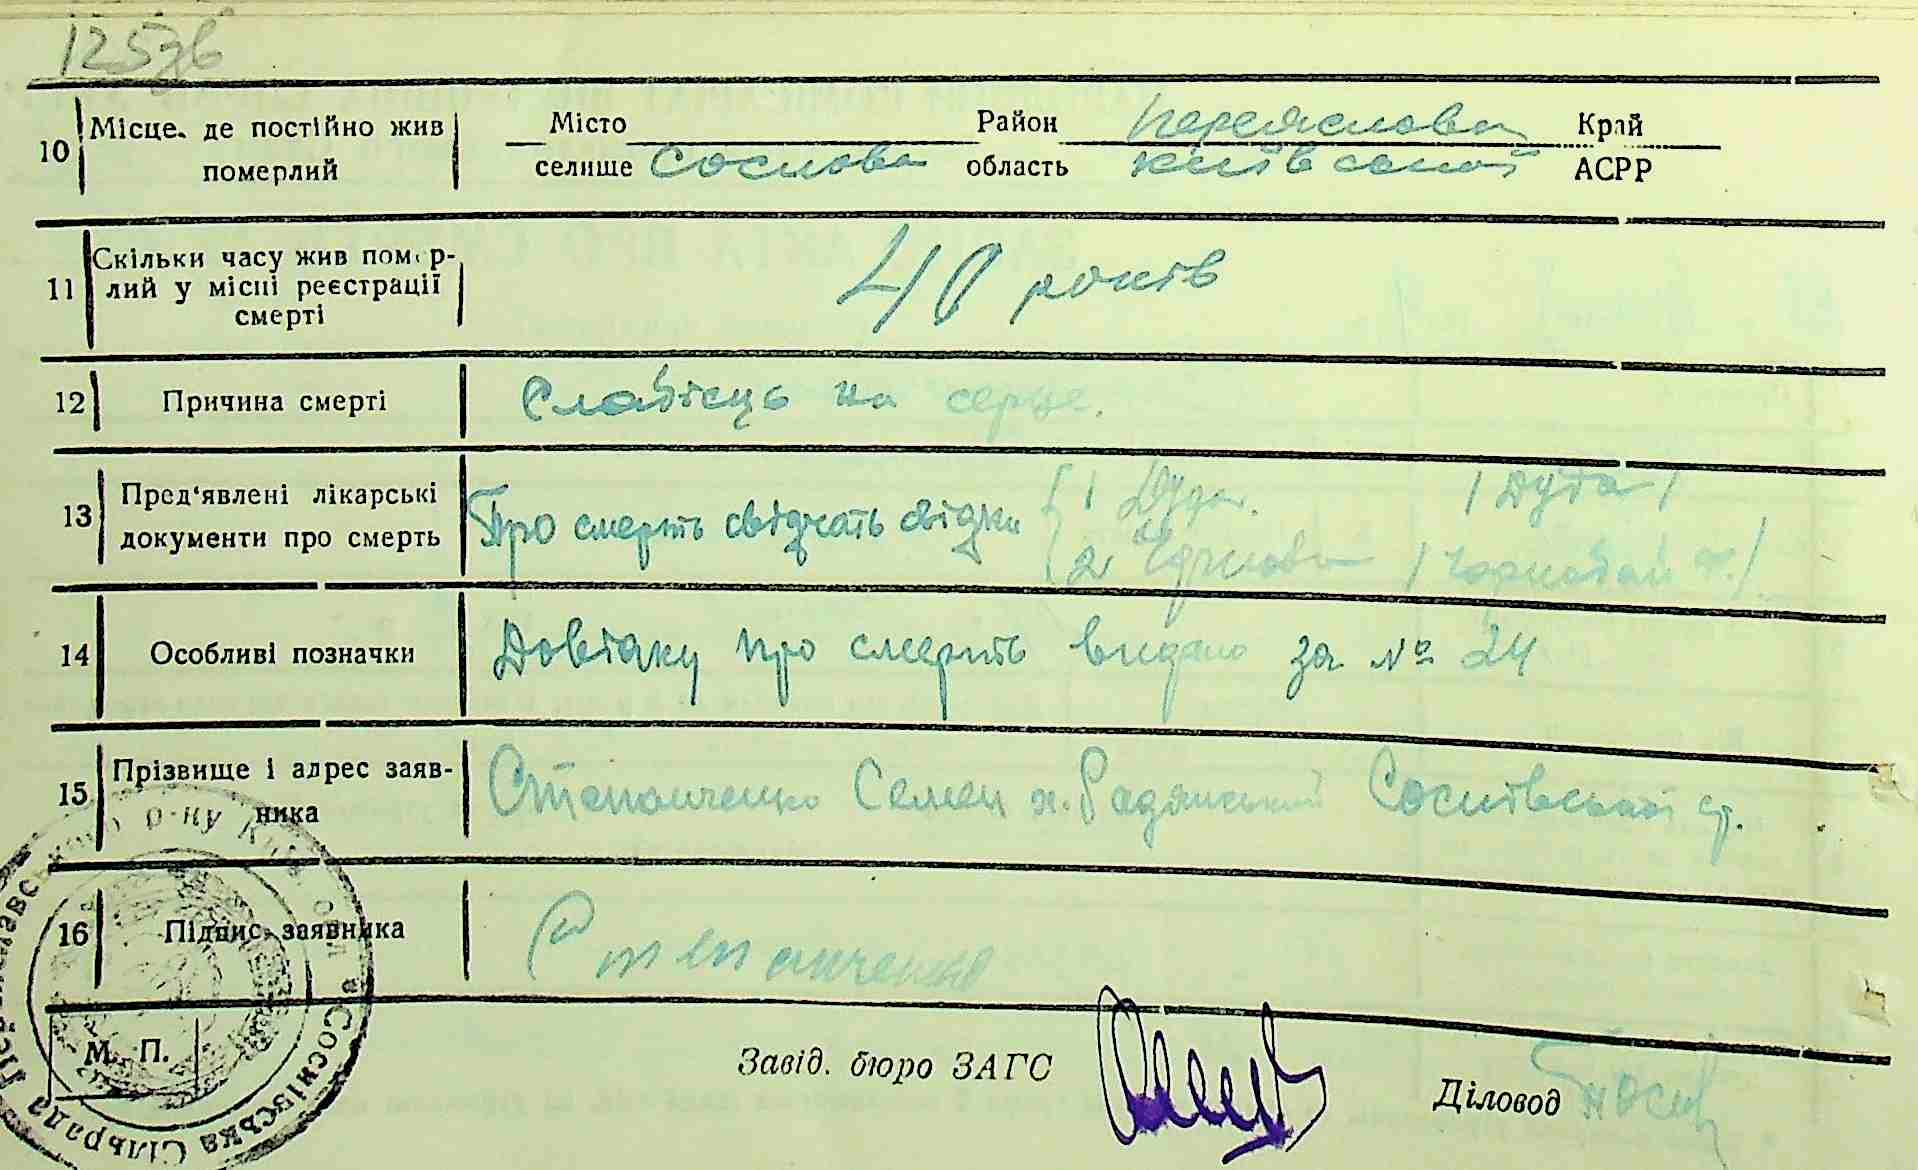 125зв
10 Місце, де постійно жив померлий
Місто
селище Соснова
Район Переяслови
область київської
Край
АСРР
11 Скільки часу жив помер-
лий у місці реєстрації
смерті
40 років
12 Причина смерті
Слабість на серце.
13 Пред'явлені лікарські
документи про смерть
Про смерть свідчать свідки
1 Дуда.
2
14 Особливі позначки
Довідку про смерть видано за № 24
15 Прізвище і адрес заяв-
ника
Степанченко Семен х. Радянський Соснівської с.
16 Підпис заявника
Степанченко
М. П.
Переяславського р-ну Київ. обл Соснівська Сільрада
Завід. бюро ЗАГС
Діловод